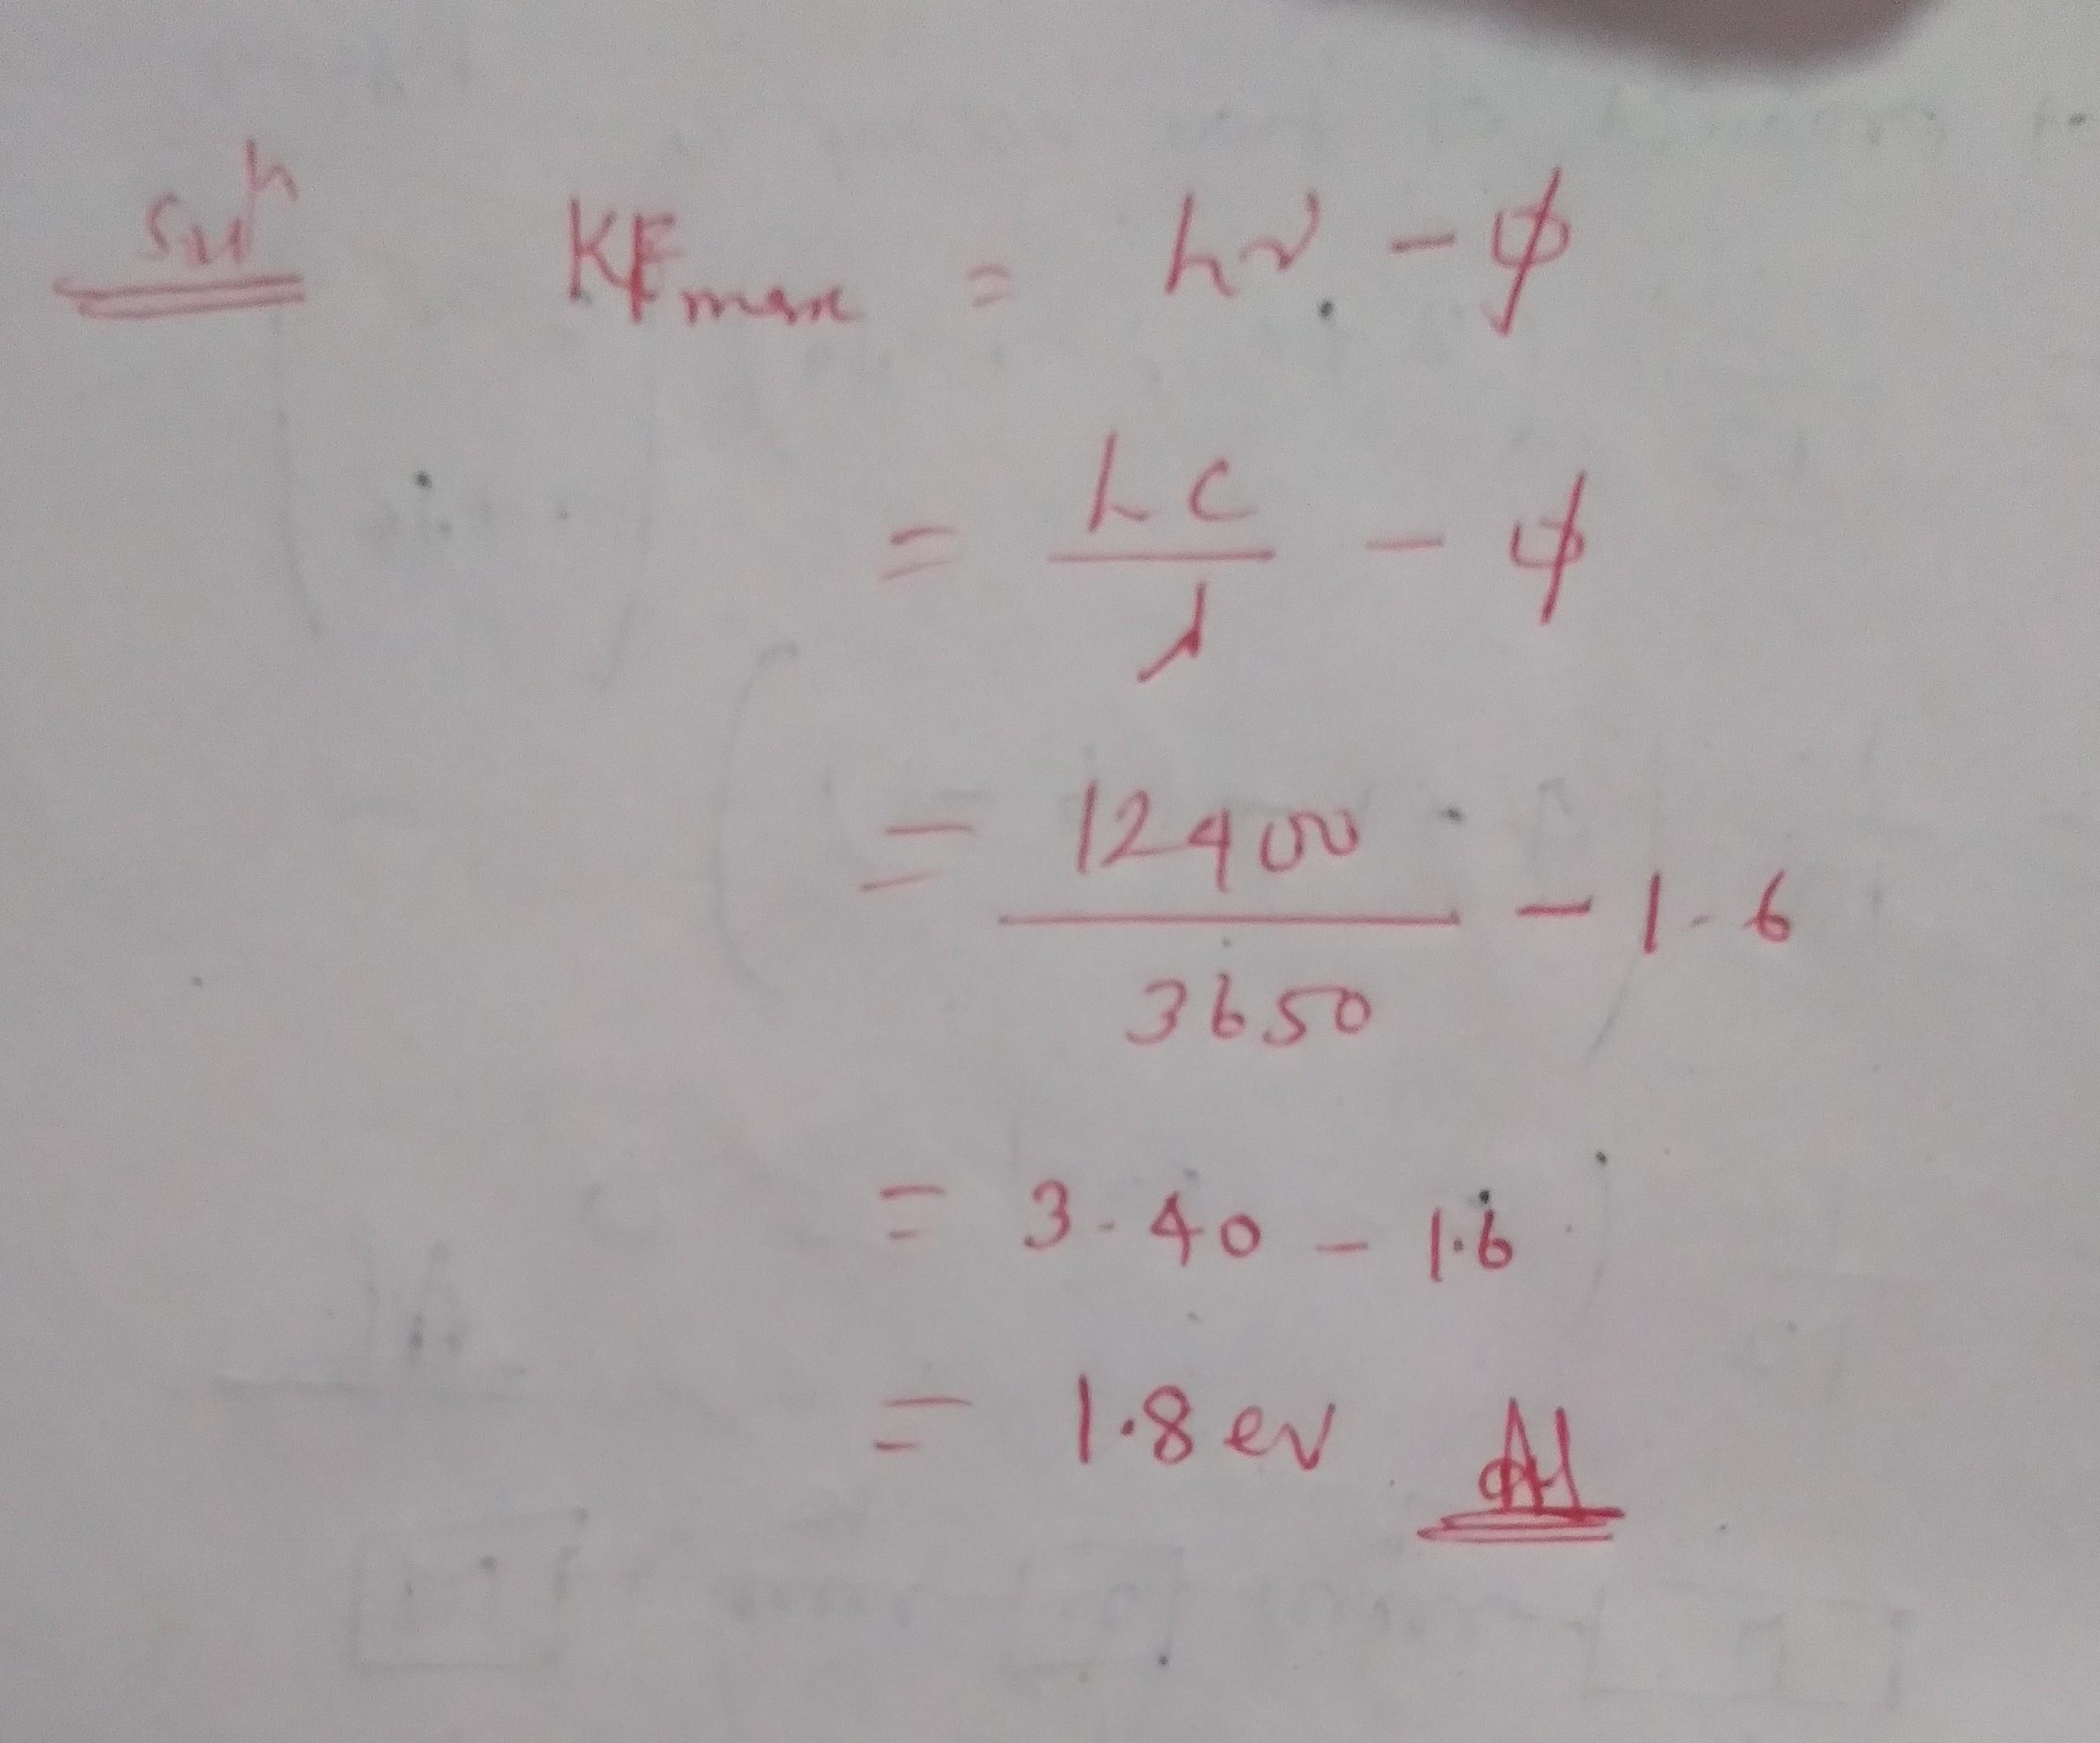 Solⁿ KEmax = hν - ϕ
= hc/λ - ϕ
= 12400/3650 - 1.6
= 3.40 - 1.6
= 1.8 ev